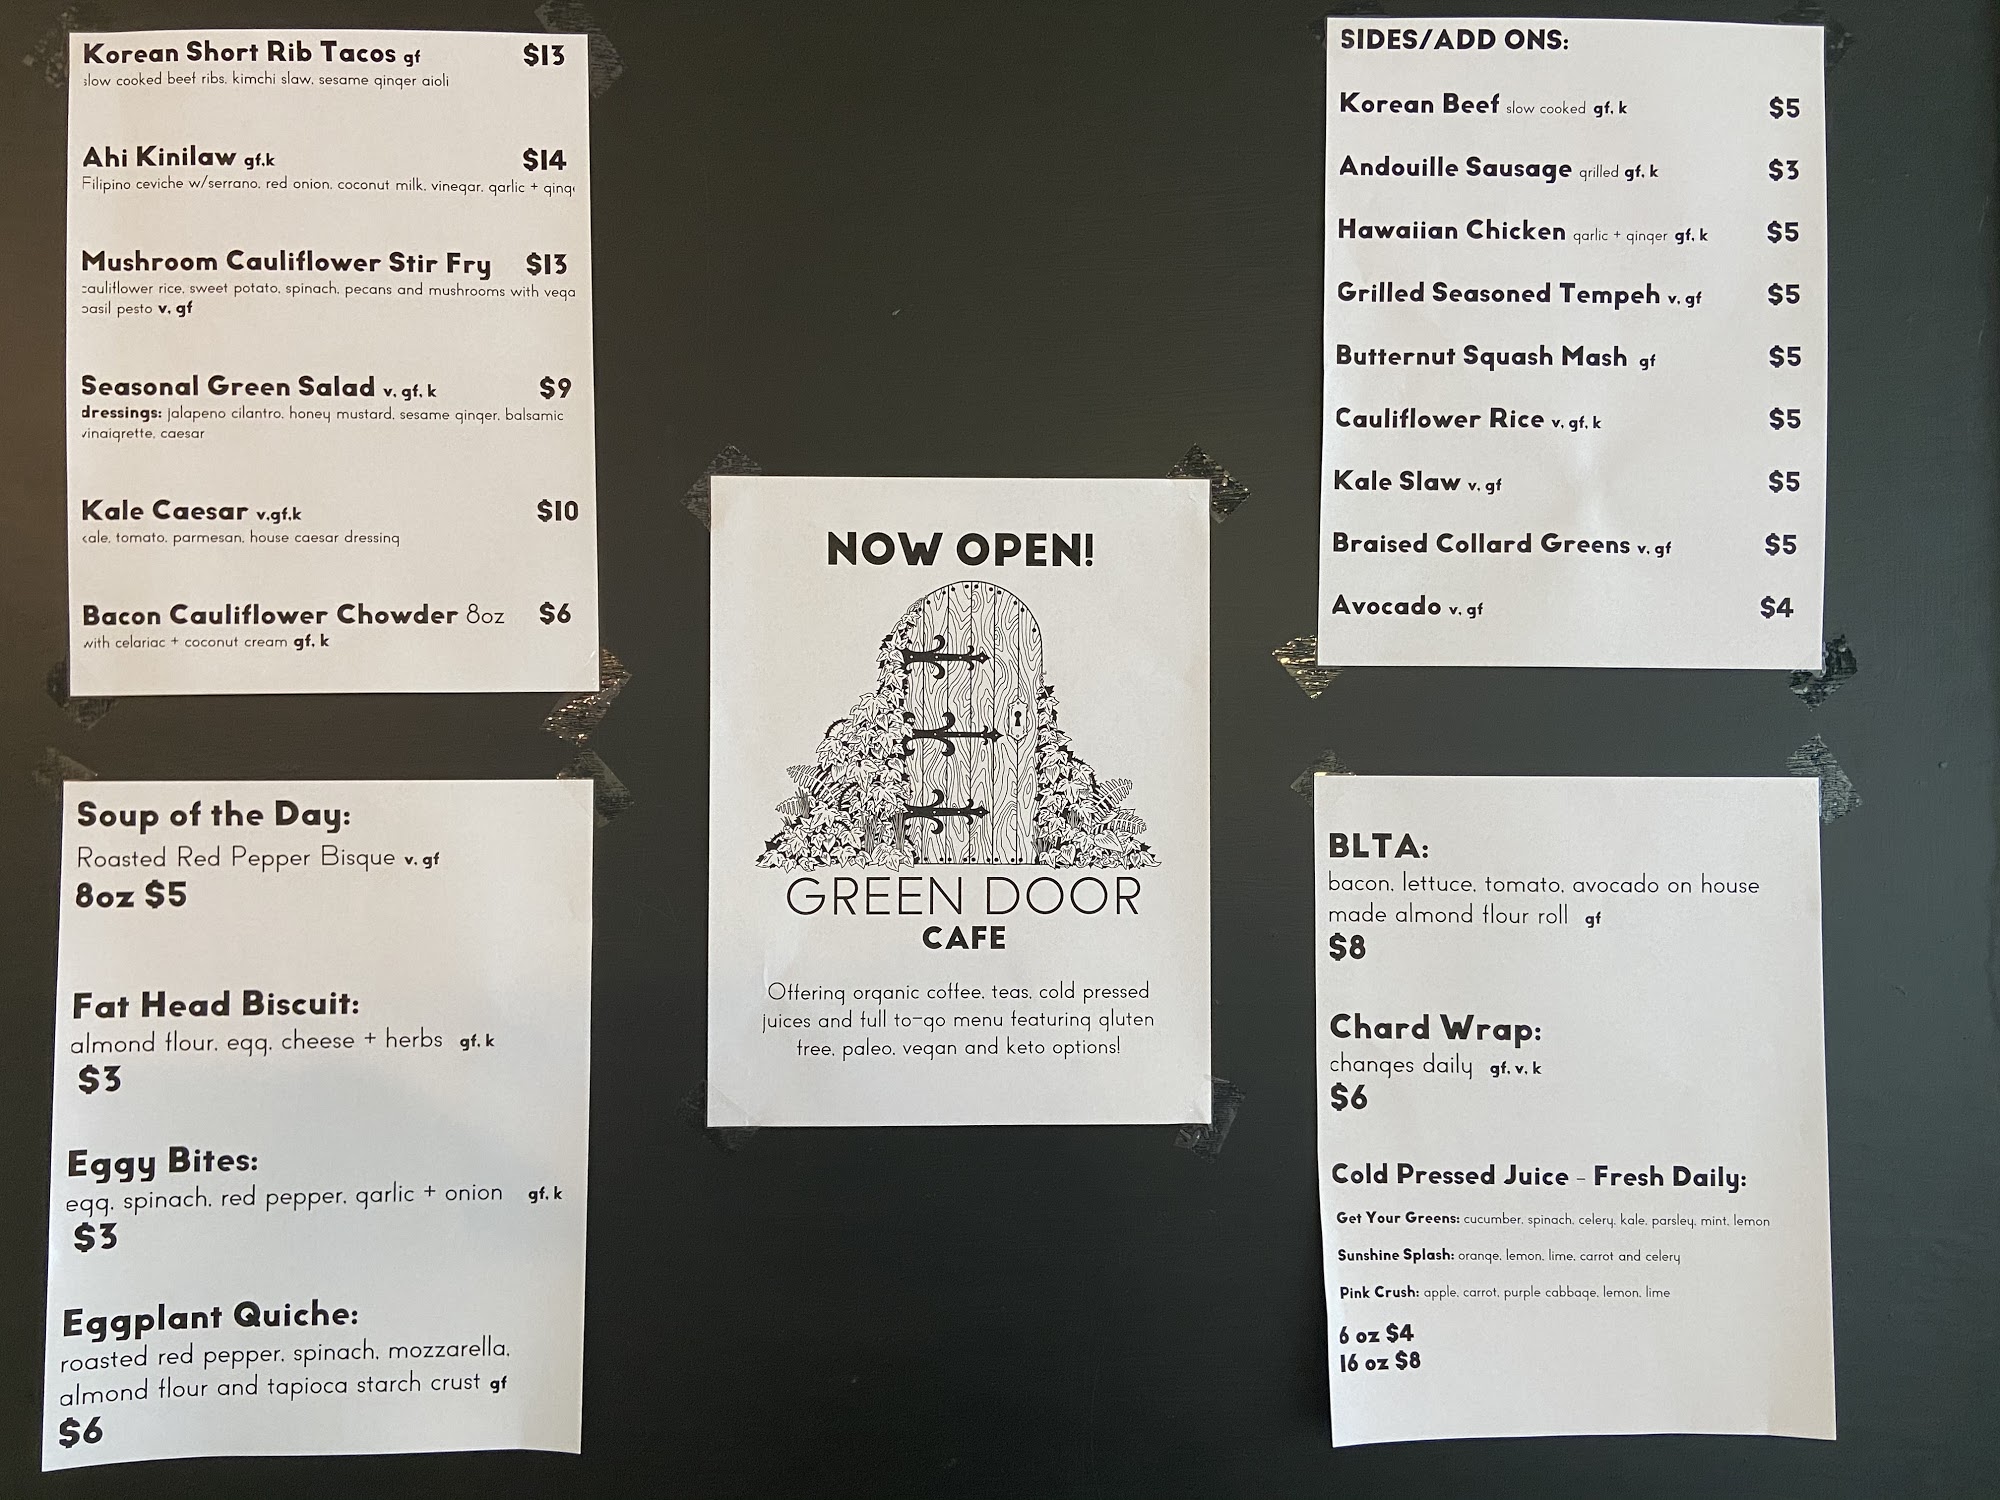 Korean Short Rib Tacos gf $13
slow cooked beef ribs, kimchi slaw, sesame ginger aioli
Ahi Kinilaw gf,k $14
Filipino ceviche w/serrano, red onion, coconut milk, vinegar, garlic + ging
Mushroom Cauliflower Stir Fry $13
cauliflower rice, sweet potato, spinach, pecans and mushrooms with vega
basil pesto v, gf
Seasonal Green Salad v, gf, k $9
dressings: jalapeno cilantro, honey mustard, sesame ginger, balsamic
vinaigrette, caesar
Kale Caesar v,gf,k $10
kale, tomato, parmesan, house caesar dressing
Bacon Cauliflower Chowder 8oz $6
with celariac + coconut cream gf, k
Soup of the Day:
Roasted Red Pepper Bisque v, gf
8oz $5
Fat Head Biscuit:
almond flour, egg, cheese + herbs gf, k
$3
Eggy Bites:
egg, spinach, red pepper, garlic + onion gf, k
$3
Eggplant Quiche:
roasted red pepper, spinach, mozzarella,
almond flour and tapioca starch crust gf
$6
NOW OPEN!
GREEN DOOR
CAFE
Offering organic coffee, teas, cold pressed
juices and full to-go menu featuring gluten
free, paleo, vegan and keto options!
SIDES/ADD ONS:
Korean Beef slow cooked gf, k $5
Andouille Sausage grilled gf, k $3
Hawaiian Chicken garlic + ginger gf, k $5
Grilled Seasoned Tempeh v, gf $5
Butternut Squash Mash gf $5
Cauliflower Rice v, gf, k $5
Kale Slaw v, gf $5
Braised Collard Greens v, gf $5
Avocado v, gf $4
BLTA:
bacon, lettuce, tomato, avocado on house
made almond flour roll gf
$8
Chard Wrap:
changes daily gf, v, k
$6
Cold Pressed Juice - Fresh Daily:
Get Your Greens: cucumber, spinach, celery, kale, parsley, mint, lemon
Sunshine Splash: orange, lemon, lime, carrot and celery
Pink Crush: apple, carrot, purple cabbage, lemon, lime
6 oz $4
16 oz $8